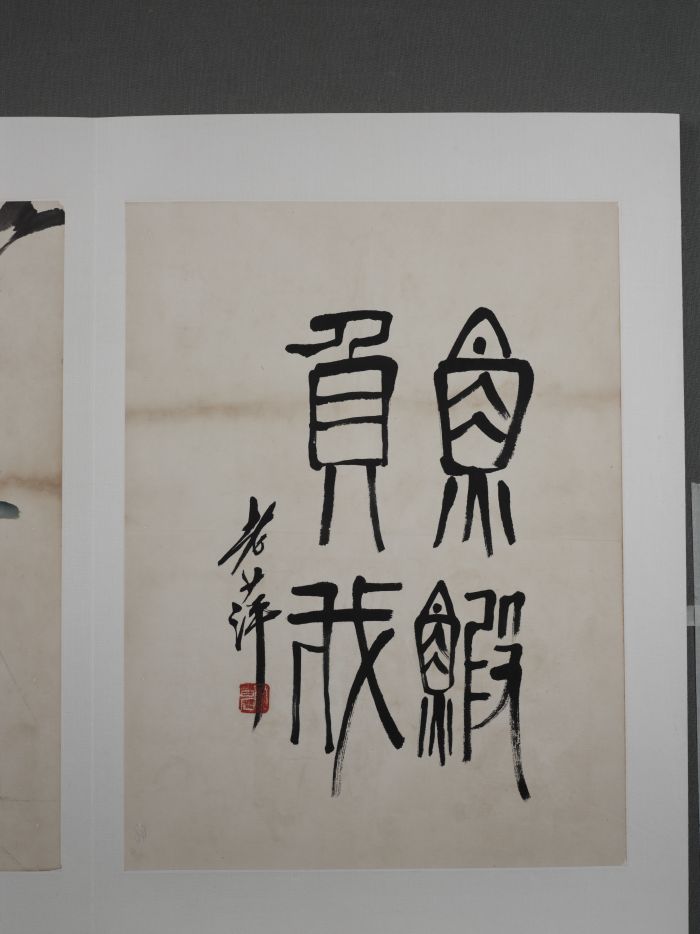 魚鰕
負我
老萍